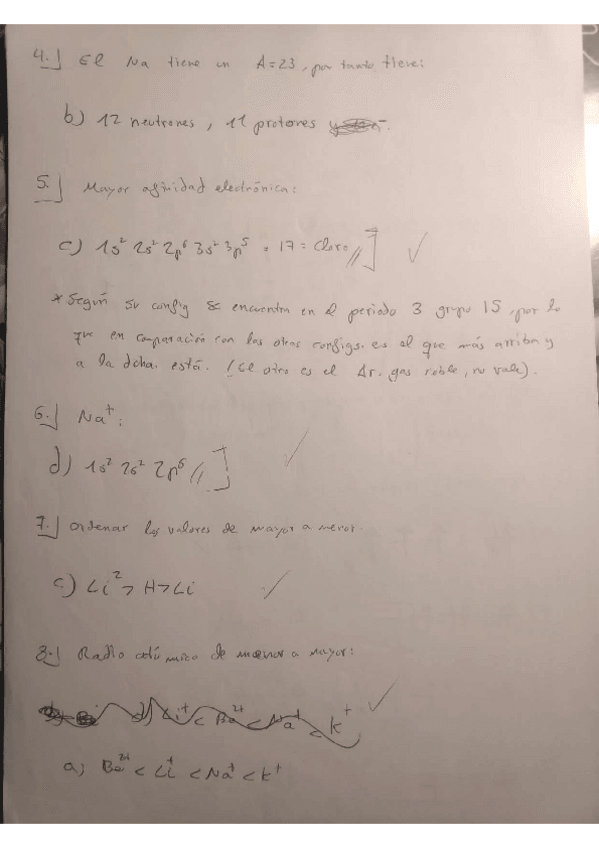 4.] El Na tiene un A=23, por tanto tiene:
b) 12 neutrones, 11 protones
5.] Mayor afinidad electrónica:
c) 1s² 2s² 2p⁶ 3s² 3p⁵ = 17 = Cloro //]
* Según su config se encuentra en el periodo 3 grupo 15, por lo
que en comparación con las otras configs. es el que más arriba y
a la dcha. está. (El otro es el Ar. gas noble, no vale).
6.] Na⁺:
d) 1s² 2s² 2p⁶ //]
7.] Ordenar los valores de mayor a menor.
c) Li² > H > Li
8.] Radio atómico de menor a mayor:
d) Li⁺ < Be²⁺ < Na⁺ < K⁺
a) Be²⁺ < Li⁺ < Na⁺ < K⁺